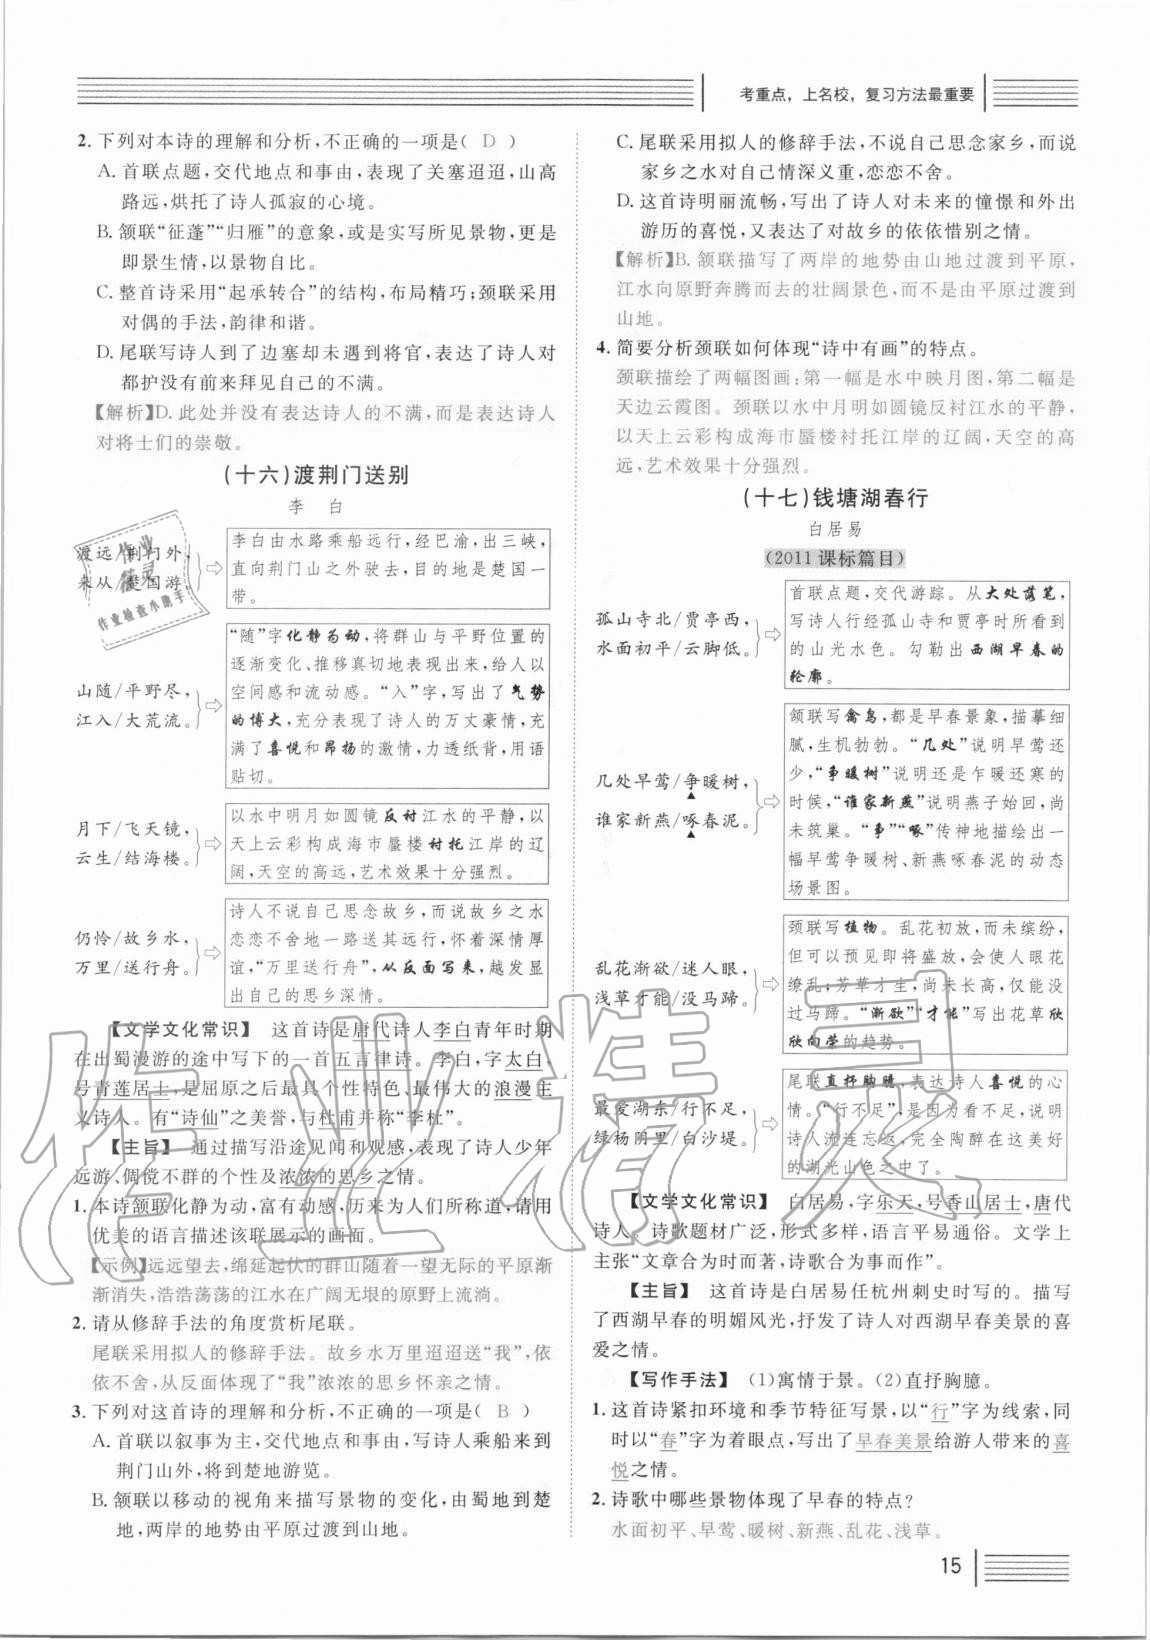 考重点，上名校，复习方法最重要
2. 下列对本诗的理解和分析，不正确的一项是( D )
A. 首联点题，交代地点和事由，表现了关塞迢迢，山高
路远，烘托了诗人孤寂的心境。
B. 颔联“征蓬”“归雁”的意象，或是实写所见景物，更是
即景生情，以景物自比。
C. 整首诗采用“起承转合”的结构，布局精巧；颈联采用
对偶的手法，韵律和谐。
D. 尾联写诗人到了边塞却未遇到将官，表现了诗人对
都护没有前来拜见自己的不满。
【解析】D. 此处并没有表达诗人的不满，而是表达诗人
对将士们的崇敬。
(十六)渡荆门送别
李 白
渡远/荆门外，
来从/楚国游。
李白由水路乘船远行，经巴渝，出三峡，
直向荆门山之外驶去，目的地是楚国一
带。
山随/平野尽，
江入/大荒流。
“随”字化静为动，将群山与平野位置的
逐渐变化、推移真切地表现出来，给人以
空间感和流动感。“入”字，写出了气势
的博大，充分表现了诗人的万丈豪情，充
满了喜悦和昂扬的激情，力透纸背，用语
贴切。
月下/飞天镜，
云生/结海楼。
以水中明月如圆镜反衬江水的平静，以
天上云彩构成海市蜃楼衬托江岸的辽
阔，天空的高远，艺术效果十分强烈。
仍怜/故乡水，
万里/送行舟。
诗人不说自己思念故乡，而说故乡之水
恋恋不舍地一路送其远行，怀着深情厚
谊，“万里送行舟”，从反面写来，越发显
出自己的思乡深情。
【文学文化常识】 这首诗是唐代诗人李白青年时期
在出蜀漫游的途中写下的一首五言律诗。李白，字太白，
号青莲居士，是屈原之后最具个性特色、最伟大的浪漫主
义诗人。有“诗仙”之美誉，与杜甫并称“李杜”。
【主旨】 通过描写沿途见闻和观感，表现了诗人少年
远游、倜傥不群的个性及浓浓的思乡之情。
1. 本诗颔联化静为动，富有动感，历来为人们所称道，请用
优美的语言描述该联展示的画面。
【示例】远远望去，绵延起伏的群山随着一望无际的平原渐
渐消失，浩浩荡荡的江水在广阔无垠的原野上流淌。
2. 请从修辞手法的角度赏析尾联。
尾联采用拟人的修辞手法。故乡水万里迢迢送“我”，依
依不舍，从反面体现了“我”浓浓的思乡怀亲之情。
3. 下列对这首诗的理解和分析，不正确的一项是( B )
A. 首联以叙事为主，交代地点和事由，写诗人乘船来到
荆门山外，将到楚地游览。
B. 颔联以移动的视角来描写景物的变化，由蜀地到楚
地，两岸的地势由平原过渡到山地。
C. 尾联采用拟人的修辞手法，不说自己思念家乡，而说
家乡之水对自己情深义重，恋恋不舍。
D. 这首诗明丽流畅，写出了诗人对未来的憧憬和外出
游历的喜悦，又表达了对故乡的依依惜别之情。
【解析】B. 颔联描写了两岸的地势由山地过渡到平原，
江水向原野奔腾而去的壮阔景色，而不是由平原过渡到
山地。
4. 简要分析颈联如何体现“诗中有画”的特点。
颈联描绘了两幅图画：第一幅是水中映月图，第二幅是
天边云霞图。颈联以水中月明如圆镜反衬江水的平静，
以天上云彩构成海市蜃楼衬托江岸的辽阔，天空的高
远，艺术效果十分强烈。
(十七)钱塘湖春行
白居易
(2011 课标篇目)
孤山寺北/贾亭西，
水面初平/云脚低。
首联点题，交代游踪。从大处落笔，
写诗人行经孤山寺和贾亭时所看到
的山光水色。勾勒出西湖早春的
轮廓。
几处早莺/争暖树，
谁家新燕/啄春泥。
颔联写禽鸟，都是早春景象，描摹细
腻，生机勃勃。“几处”说明早莺还
少，“争暖树”说明还是乍暖还寒的
时候，“谁家新燕”说明燕子始回，尚
未筑巢。“争”“啄”传神地描绘出一
幅早莺争暖树、新燕啄春泥的动态
场景图。
乱花渐欲/迷人眼，
浅草才能/没马蹄。
颈联写植物。乱花初放，而未缤纷，
但可以预见即将盛放，会使人眼花
缭乱；芳草才生，尚未长高，仅能没
过马蹄。“渐欲”“才能”写出花草欣
欣向荣的趋势。
最爱湖东/行不足，
绿杨阴里/白沙堤。
尾联直抒胸臆，表达诗人喜悦的心
情。“行不足”，是因为看不足，说明
诗人流连忘返，完全陶醉在这美好
的湖光山色之中了。
【文学文化常识】 白居易，字乐天，号香山居士，唐代
诗人。诗歌题材广泛，形式多样，语言平易通俗。文学上
主张“文章合为时而著，诗歌合为事而作”。
【主旨】 这首诗是白居易任杭州刺史时写的。描写
了西湖早春的明媚风光，抒发了诗人对西湖早春美景的喜
爱之情。
【写作手法】 (1)寓情于景。(2)直抒胸臆。
1. 这首诗紧扣环境和季节特征写景，以“行”字为线索，同
时以“春”字为着眼点，写出了早春美景给游人带来的喜
悦之情。
2. 诗歌中哪些景物体现了早春的特点？
水面初平、早莺、暖树、新燕、乱花、浅草。
15
作业
精灵
作业检查小助手
作业精灵